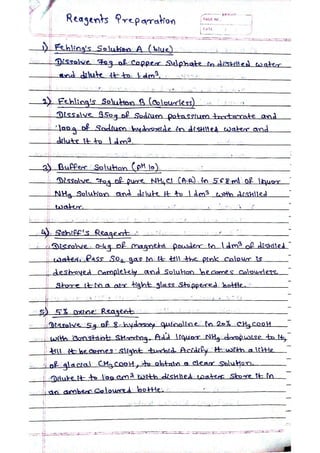 Reagents Preparation
PAGE NO.
DATE
1) Fehling's Solution A (blue)
Dissolve 70g of Copper Sulphate in distilled water
and dilute it to 1 dm³.
2) Fehling's Solution B (Colourless)
Dissolve 350g of Sodium potassium tartarate and
100g of Sodium hydroxide in distilled water and
dilute it to 1 dm³.
3) Buffer Solution (pH 10)
Dissolve 70g of pure NH4Cl (A.R) in 568 ml of liquor
NH3 Solution and dilute it to 1 dm³ with distilled
water.
4) Schiff's Reagent
Dissolve 0.4g of magneta powder in 1 dm³ of distilled
water. Pass SO2 gas in it till the pink colour is
destroyed Completely and Solution becomes Colourless
Store it in a air tight glass Stoppered bottle.
5) 5% oxine Reagent
Dissolve 5g of 8-hydroxy quinoline in 20% CH3COOH
with Constant Stirring. Add liquor NH3 dropwise to it,
till it becomes slight turbid Acidify it with a little
of glacial CH3COOH, to obtain a clear Solution.
Dilute it to 100 cm³ with distilled water Store it in
an amber Coloured bottle.